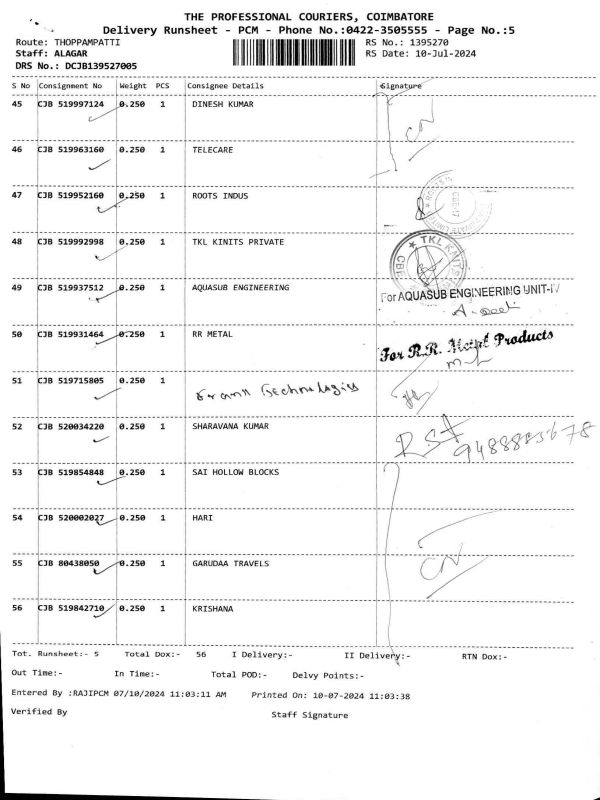 THE PROFESSIONAL COURIERS, COIMBATORE
Delivery Runsheet - PCM - Phone No.:0422-3505555 - Page No.:5
Route: THOPPAMPATTI RS No.: 1395270
Staff: ALAGAR RS Date: 10-Jul-2024
DRS No.: DCJB139527005
S No Consignment No Weight PCS Consignee Details Signature
45 CJB 519997124 0.250 1 DINESH KUMAR
CN
46 CJB 519963160 0.250 1 TELECARE
47 CJB 519952160 0.250 1 ROOTS INDUS
48 CJB 519992998 0.250 1 TKL KINITS PRIVATE
TKL KNITS
49 CJB 519937512 0.250 1 AQUASUB ENGINEERING
For AQUASUB ENGINEERING UNIT-IV
50 CJB 519931464 0.250 1 RR METAL
For R.R. Metal Products
51 CJB 519715805 0.250 1 Technologies
52 CJB 520034220 0.250 1 SHARAVANA KUMAR
53 CJB 519854848 0.250 1 SAI HOLLOW BLOCKS
54 CJB 520002027 0.250 1 HARI
55 CJB 80438050 0.250 1 GARUDAA TRAVELS
CN
56 CJB 519842710 0.250 1 KRISHANA
Tot. Runsheet:- 5 Total Dox:- 56 I Delivery:- II Delivery:- RTN Dox:-
Out Time:- In Time:- Total POD:- Delvy Points:-
Entered By :RAJIPCM 07/10/2024 11:03:11 AM Printed On: 10-07-2024 11:03:38
Verified By Staff Signature